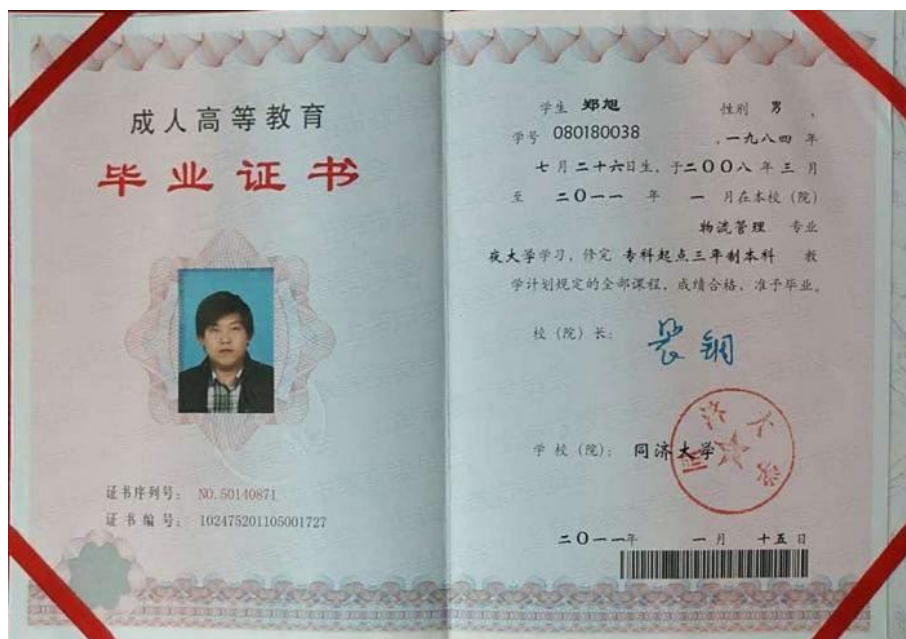 成人高等教育
毕业证书
证书序列号: NO.50140871
证书编号: 102475201105001727
学生 郑旭 性别 男,
学号 080180038 ,一九八四 年
七月二十六日生,于二〇〇八年三月
至 二〇一一 年 一 月在本校(院)
物流管理 专业
夜大学学习,修完 专科起点三年制本科 教
学计划规定的全部课程,成绩合格,准予毕业。
校(院)长: 裴钢
学校(院): 同济大学
同济大学
二〇一一年 一月 十五日